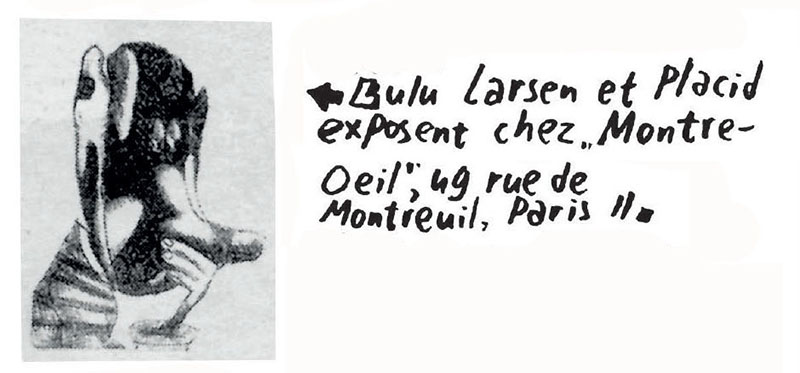 ← Bulu Larsen et Placid
exposent chez „Montre-
Oeil", 49 rue de
Montreuil, Paris 11.